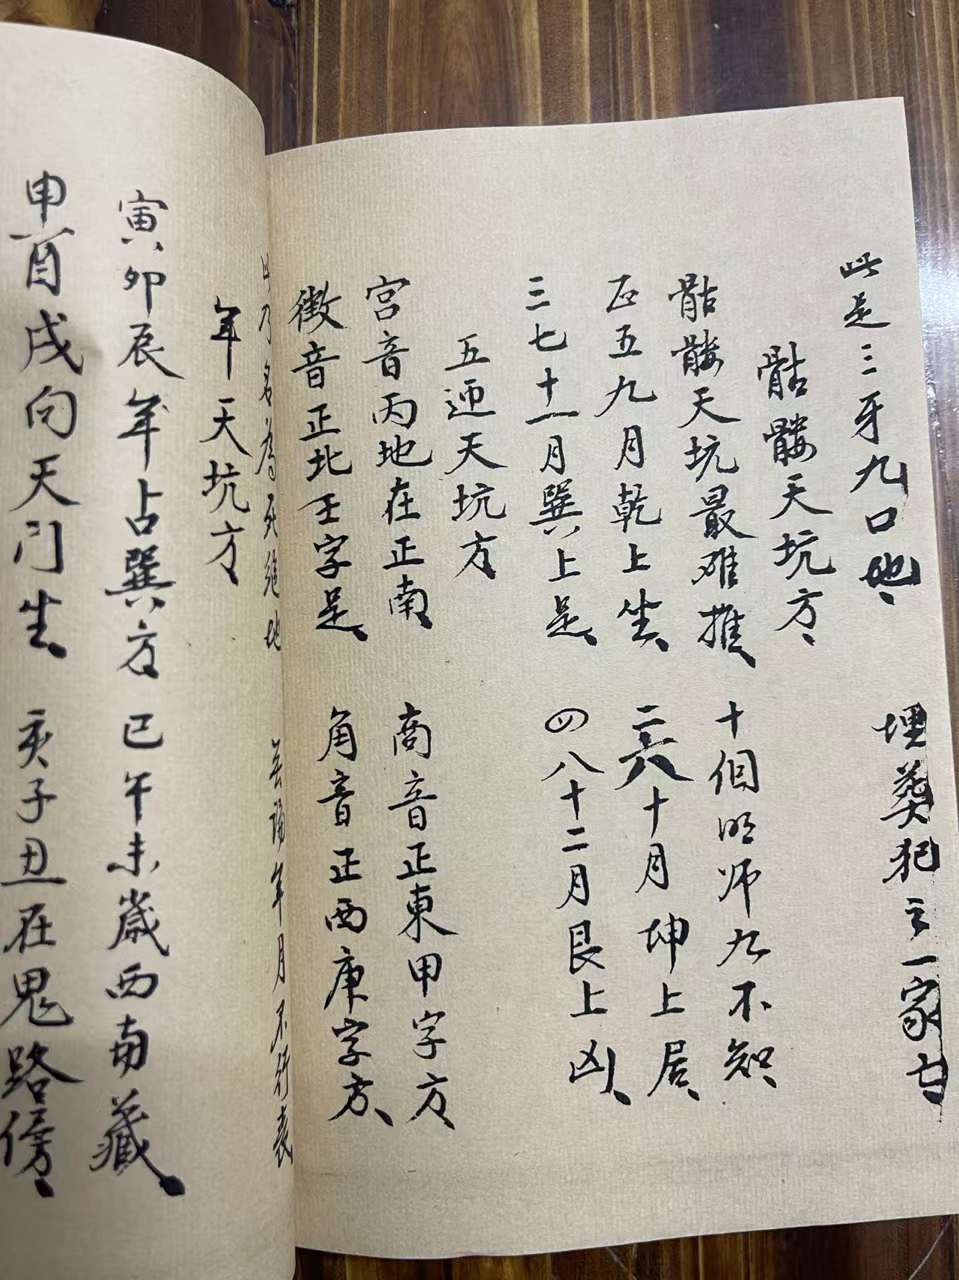 此是三牙九口地 埋葬犯之一家亡
骷髏天坑方
骷髏天坑最难推 十個明师九不知
正五九月乾上坐 二六十月坤上居
三七十一月巽上足 四八十二月艮上凶
五逥天坑方
宫音丙地在正南 商音正東甲字方
徴音正北壬字是 角音正西庚字方
此乃名為死絕地 年月不行喪
年天坑方
寅卯辰年占巽方 巳午未歲西南藏
申酉戌向天门生 亥子丑在鬼路傍